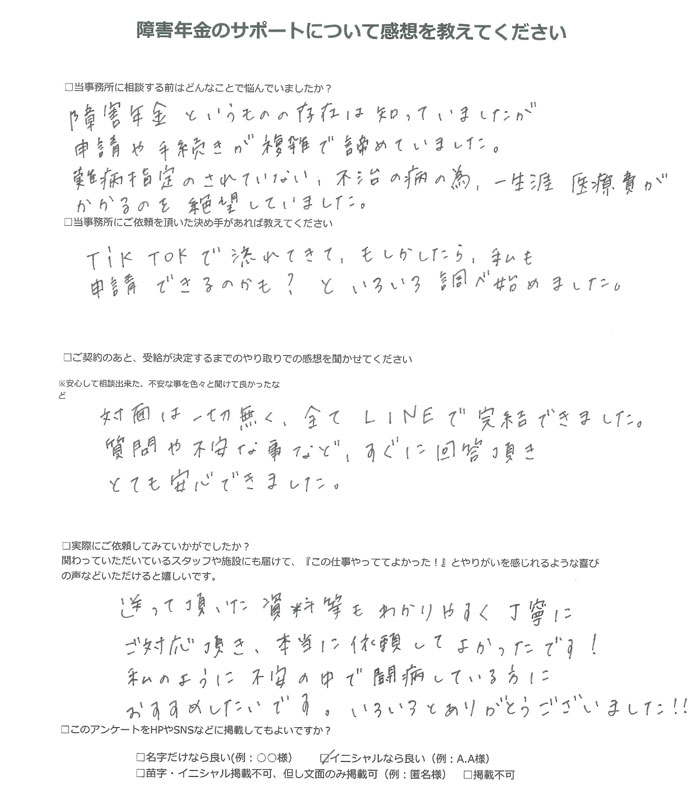 障害年金のサポートについて感想を教えてください
□当事務所に相談する前はどんなことで悩んでいましたか？
障害年金というものの存在は知っていましたが
申請や手続きが複雑で諦めていました。
難病指定のされていない、不治の病の為、一生涯 医療費が
かかるのを絶望していました。
□当事務所にご依頼を頂いた決め手があれば教えてください
TiK TOKで流れてきて、もしかしたら、私も
申請できるのかも？といろいろ調べ始めました。
□ご契約のあと、受給が決定するまでのやり取りでの感想を聞かせてください
※安心して相談出来た、不安な事を色々と聞けて良かったな
ど
対面は一切無く、全てLINEで完結できました。
質問や不安な事など、すぐに回答頂き
とても安心できました。
□実際にご依頼してみていかがでしたか？
関わっていただいているスタッフや施設にも届けて、『この仕事やっててよかった！』とやりがいを感じれるような喜び
の声などいただけると嬉しいです。
送って頂いた資料等もわかりやすく丁寧に
ご対応頂き、本当に依頼してよかったです！
私のように不安の中で闘病している方に
おすすめしたいです。いろいろとありがとうございました!!
□このアンケートをHPやSNSなどに掲載してもよいですか？
□名字だけなら良い(例：〇〇様） ☑イニシャルなら良い（例：A.A様）
□苗字・イニシャル掲載不可、但し文面のみ掲載可（例：匿名様） □掲載不可